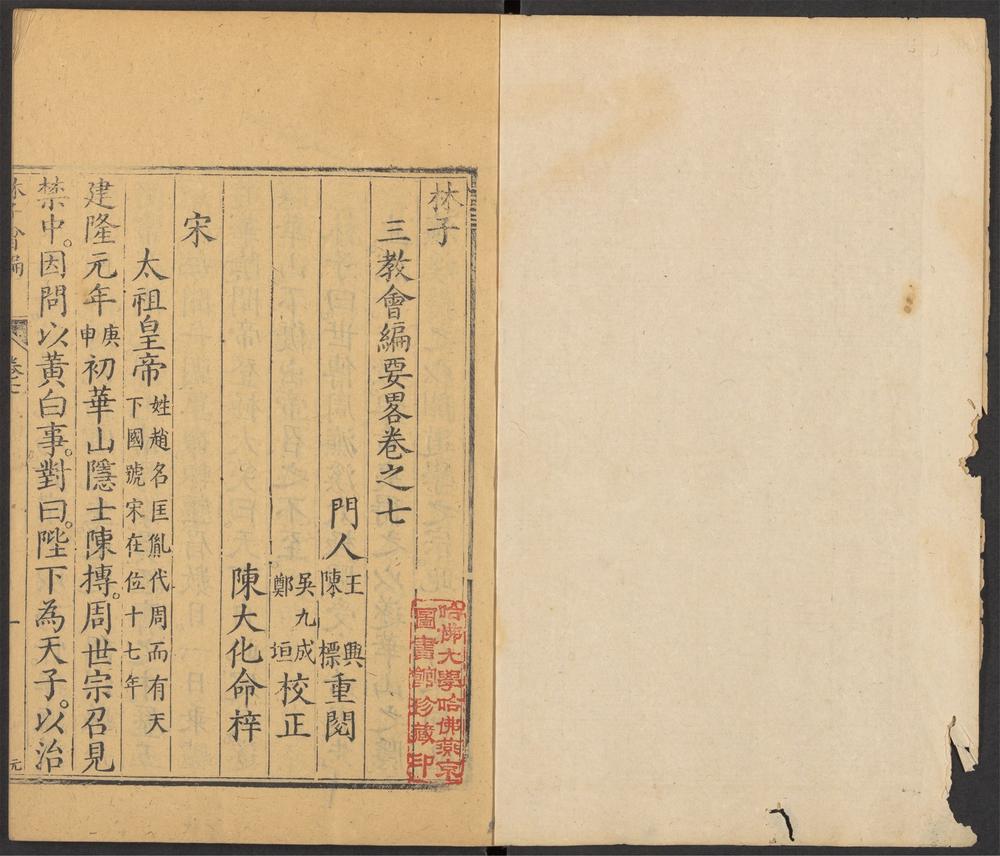 林子
三教會編要畧卷之七
門人王興陳標重閱
吳九成鄭垣校正
陳大化命梓
宋
太祖皇帝姓趙名匡胤代周而有天下國號宋在位十七年
建隆元年庚申初華山隱士陳摶。周世宗召見
禁中。因問以黃白事。對曰。陛下為天子。以治
林子會編
卷七
一
元
哈佛大學哈佛燕京
圖書館珍藏印